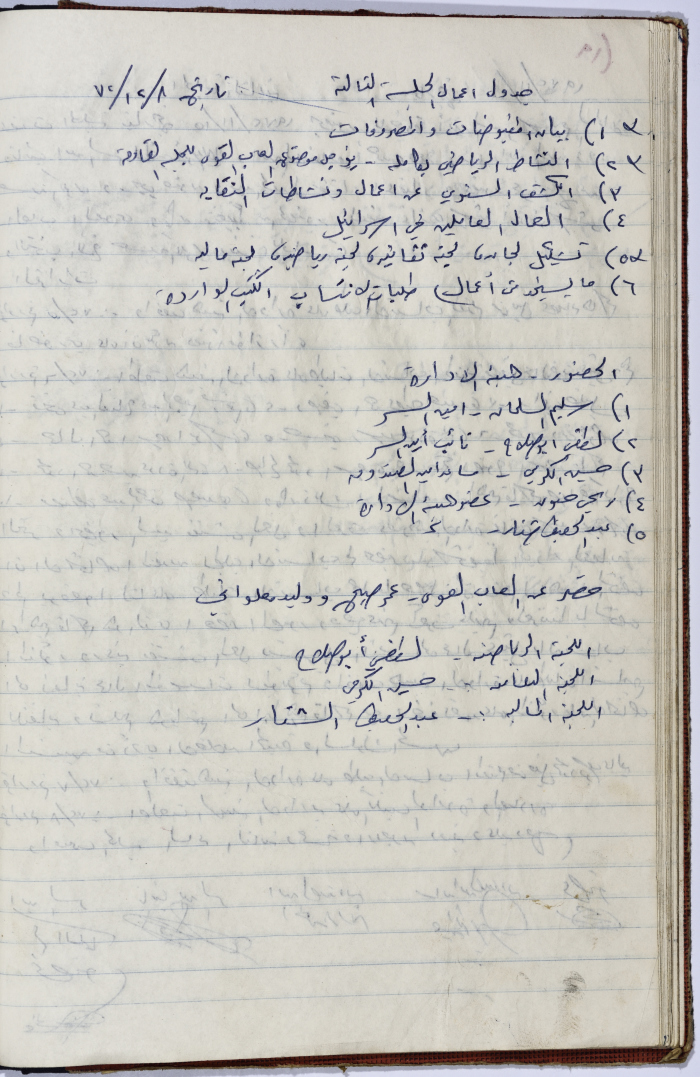 جدول اعمال الجلسة الثالثة تاريخ ٨/١٢/٧٢
١) بيان المقبوضات والمصروفات
٢) النشاط الرياضي بكامله - يؤجل موضوع العاب القوى للجلسة القادمة
٣) الكشف السنوي عن اعمال ونشاطات النقابه
٤) العمال العاملين في اسرائيل
٥) تشكيل لجان لجنة ثقافية لجنة رياضية لجنة ماليه
٦) ما يستجد من أعمال طلبات الانتساب الكتب الواردة
الحضور - هيئة الادارة
١) سليم السلمان - امين السر
٢) لطفي ابو صلاح - نائب أمين السر
٣) حسين الكرمي - أمين الصندوق
٤) - عضو هيئة الادارة
٥) عبد الحفيظ
حضر عن العاب القوى - عمر ووليد
اللجنة الرياضية - لطفي أبو صلاح
اللجنة الثقافية - حسين الكرمي
اللجنة المالية - عبد الحفيظ